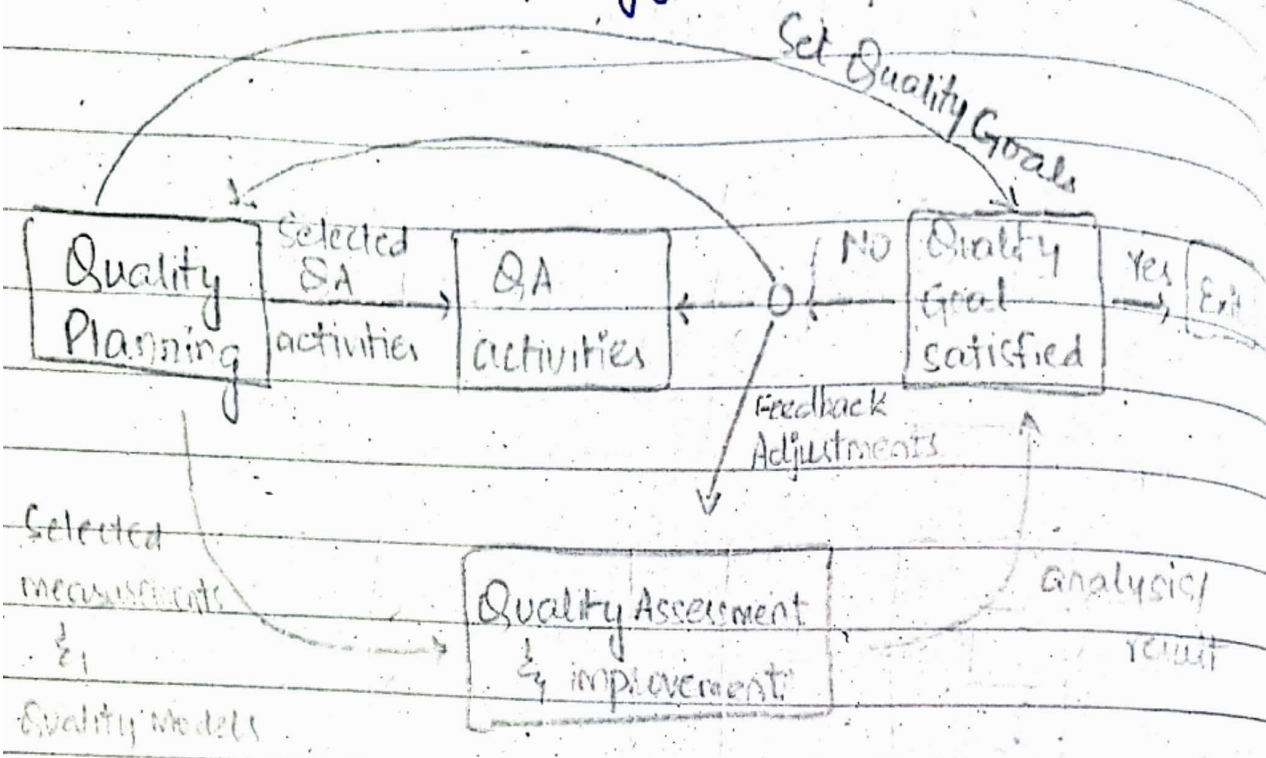 Set Quality Goals
Quality
Planning
Selected
QA
activities
QA
activities
No
Quality
Goal
satisfied
Yes
Exit
Feedback
Adjustments
Selected
measurements
&
Quality Models
Quality Assessment
& improvement
analysis/
result